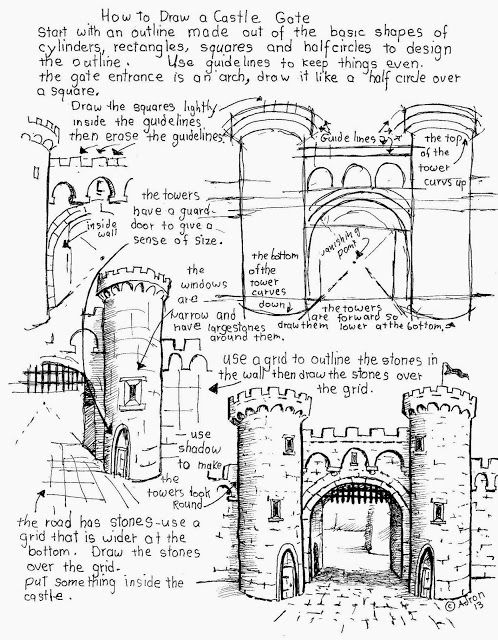 How to Draw a Castle Gate
Start with an outline made out of the basic shapes of
cylinders, rectangles, squares and halfcircles to design
the outline. Use guidelines to keep things even.
the gate entrance is an arch, draw it like a half circle over
a square.
Draw the squares lightly
inside the guidelines
then erase the guidelines
Guide lines
the top
of the
tower
curvs up
inside
wall
the towers
have a guard-
door to give a
sense of size.
vanishing
point
the bottom
of the
tower
curves
down
the towers
are forward so
draw them lower at the bottom.
the
windows
are
narrow and
have largestones
around them.
use a grid to outline the stones in
the wall then draw the stones over
the grid.
use
shadow
to make
the
towers look
Round
the road has stones-use a
grid that is wider at the
bottom. Draw the stones
over the grid.
put something inside the
castle.
© Adron
13